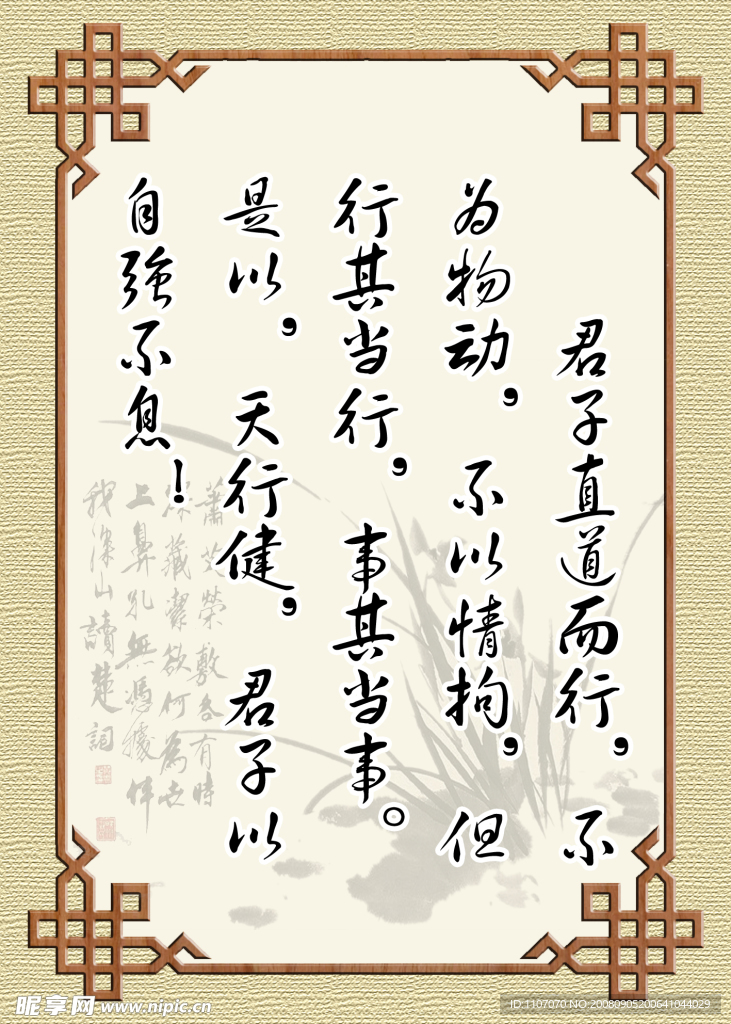 君子直道而行，不
为物动，不以情拘，但
行其当行，事其当事。
是以，天行健，君子以
自強不息！
蕭艾榮敷各有時
深藏潔欲何為世
上鼻孔無馮據伴
我深山讀楚詞
昵享网 www.nipic.cn
ID:1107070 NO.20080905200641044029